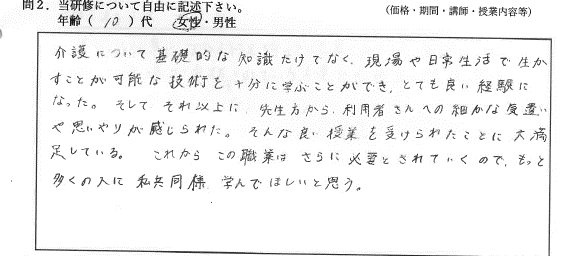 問２．当研修について自由に記述下さい。
年齢（ 10 ）代　女性・男性　（価格・期間・講師・授業内容等）
介護について基礎的な知識だけでなく、現場や日常生活で生か
すことが可能な技術を十分に学ぶことができ、とても良い経験に
なった。そして それ以上に、先生方から、利用者さんへの細かな気遣い
や思いやりが感じられた。そんな良い授業を受けられたことに大満
足している。これから この職業は さらに必要とされていくので、もっと
多くの人に 私共同様、学んでほしいと思う。